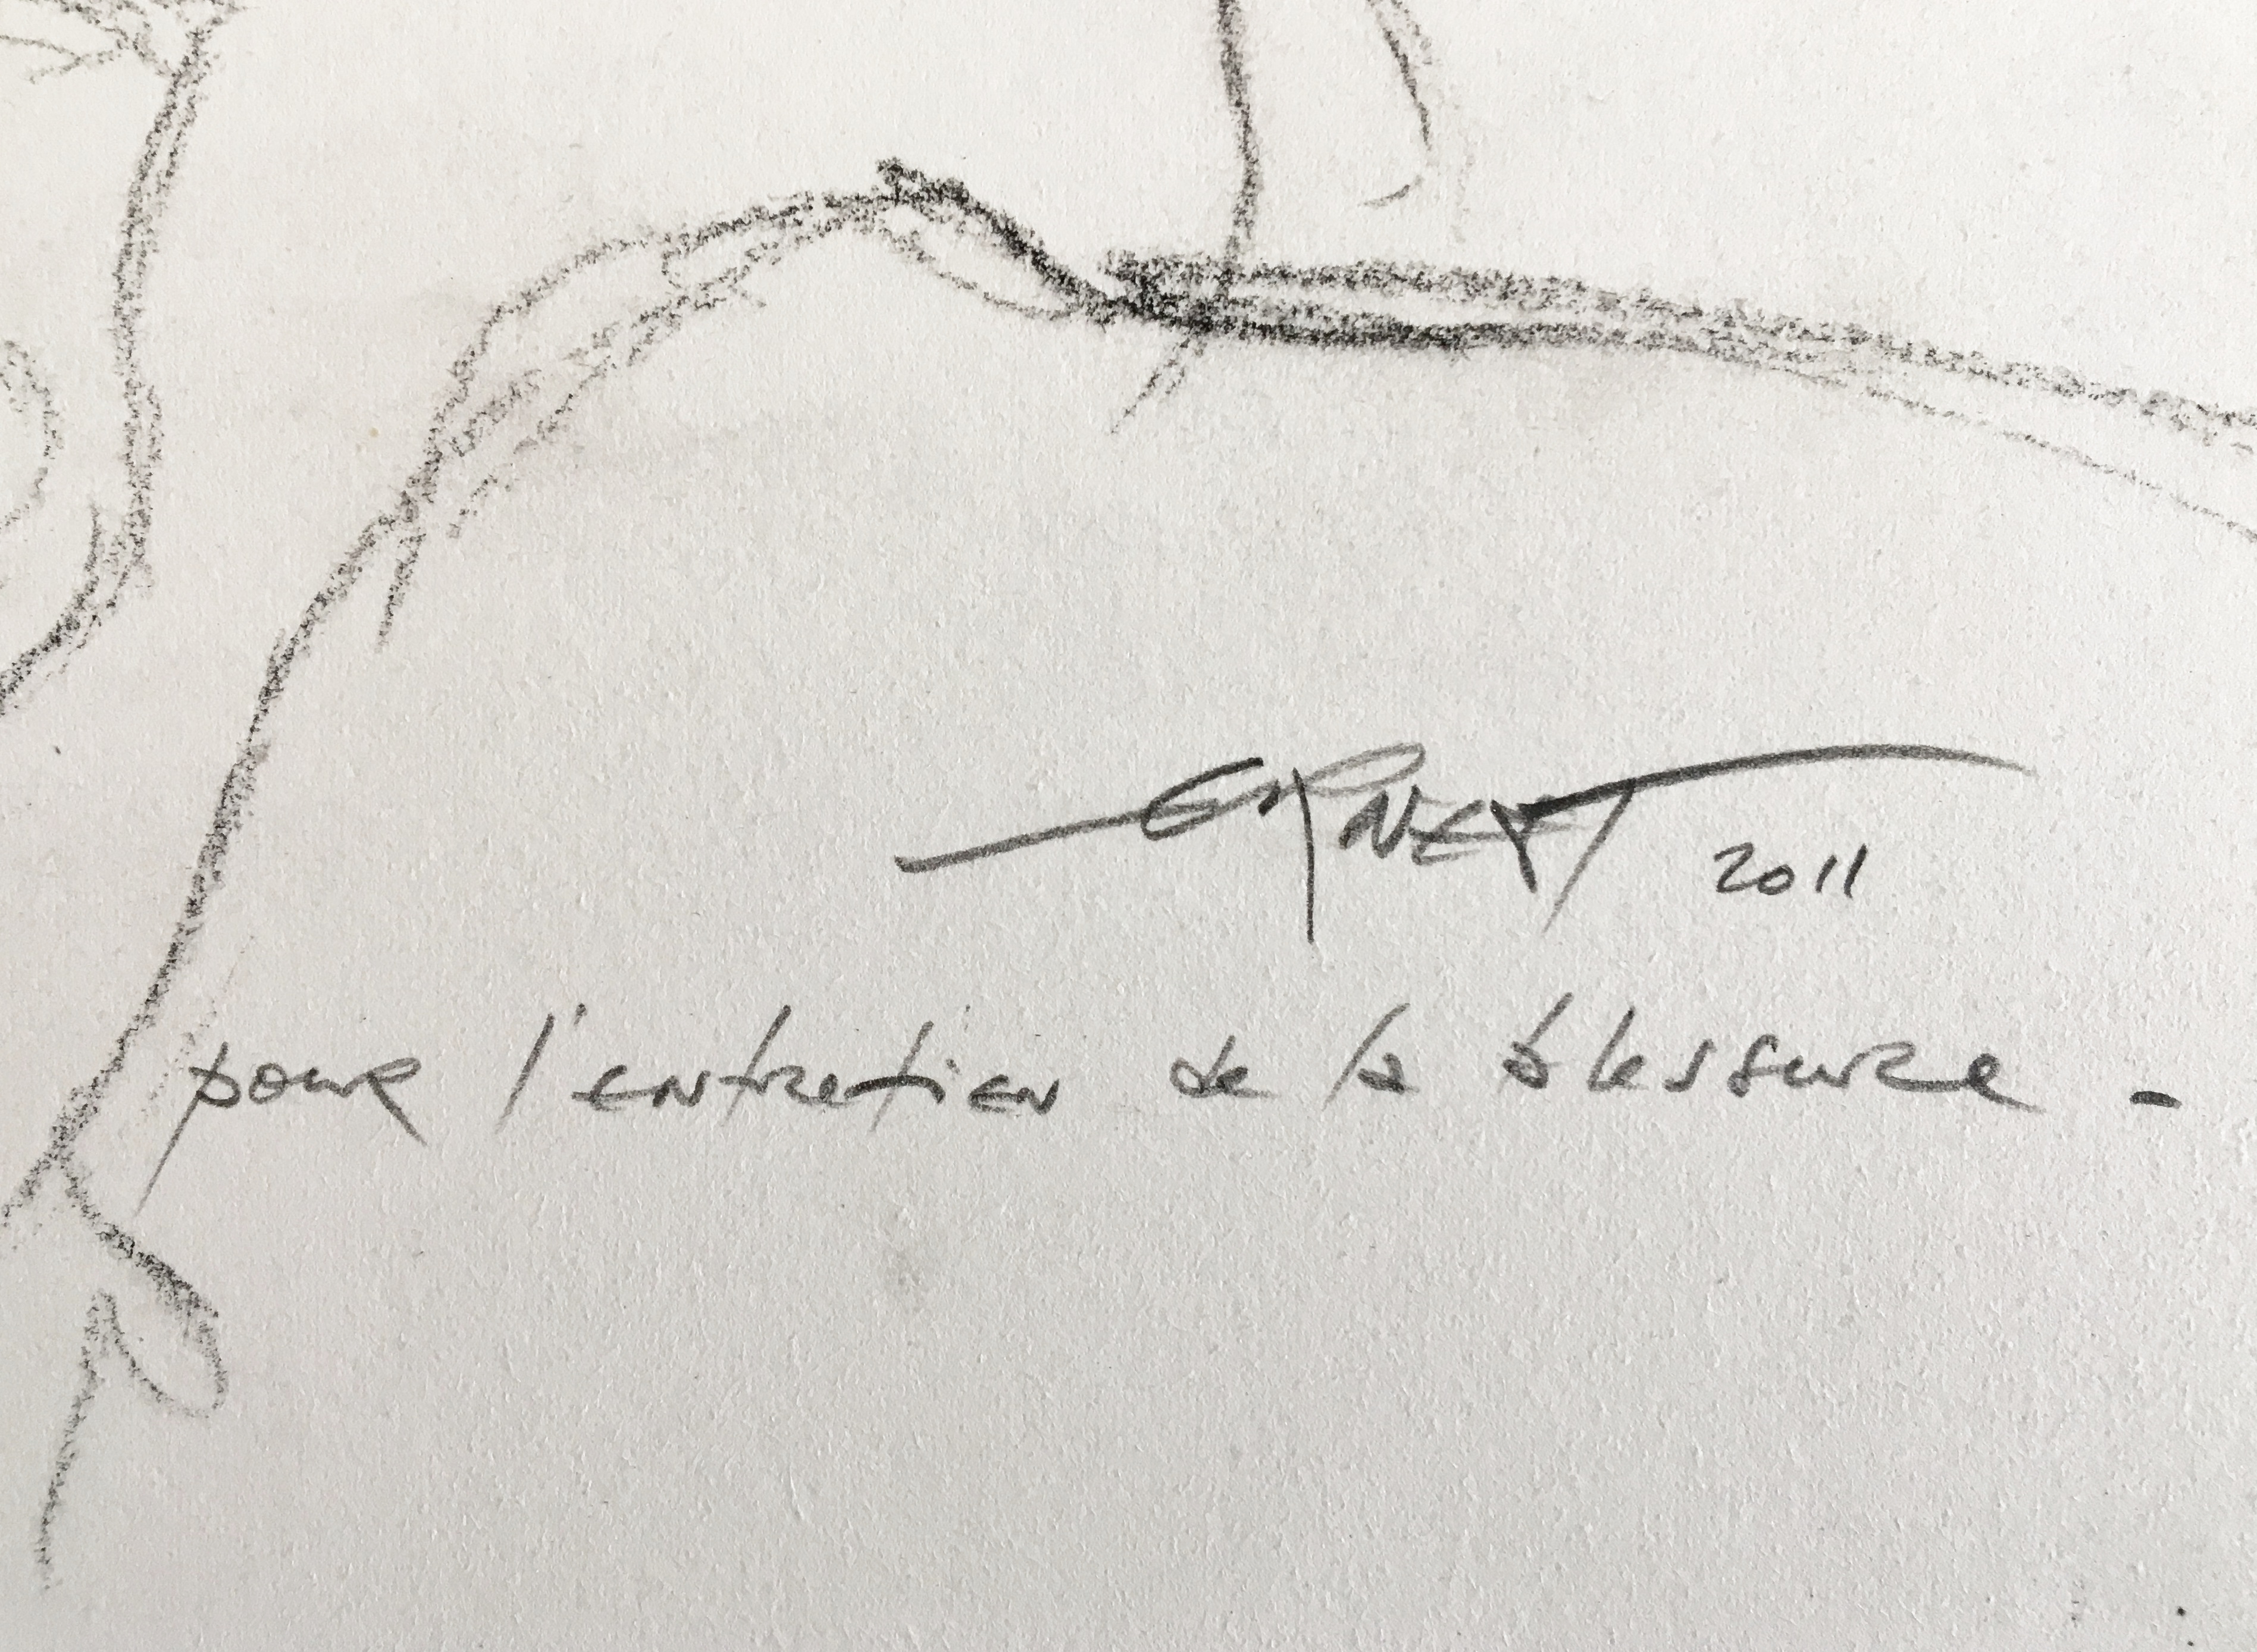 ERNEST 2011
pour l'entretien de la blessure -